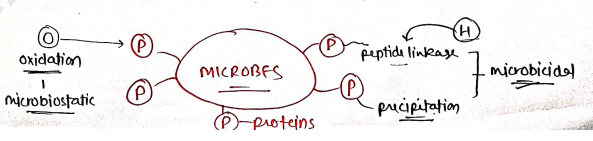 O
P
P
H
oxidation
peptide linkage
MICROBES
microbicidal
P
P
microbiostatic
precipitation
P - proteins